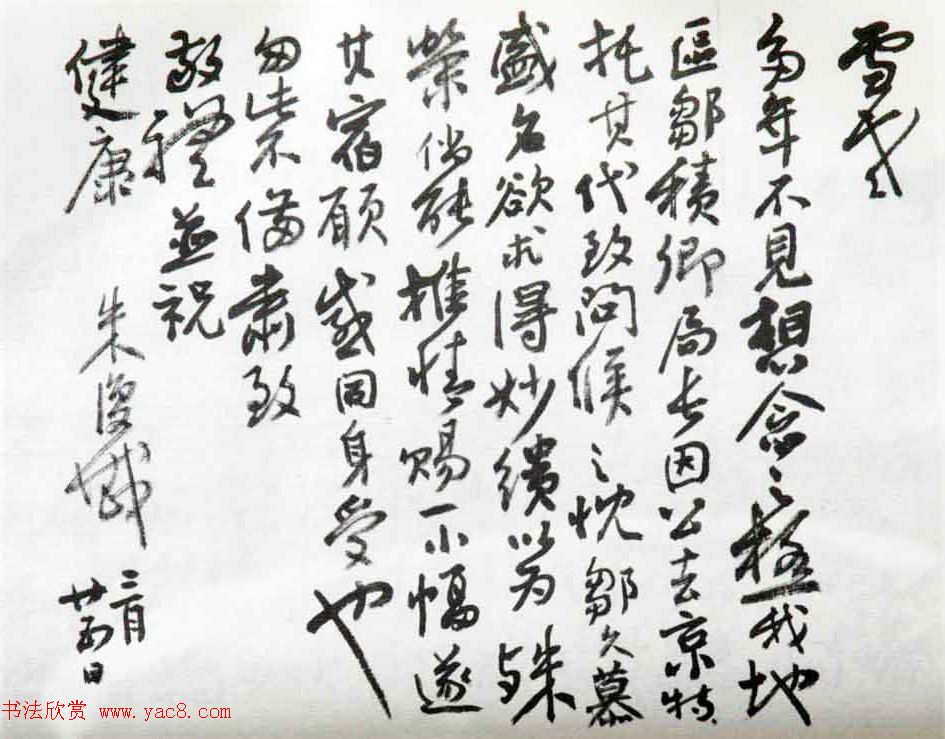 雪
多年不見想念之極我地
區鄒積卿局長因公去京特
托其代致問候之忱鄒久慕
盛名欲求得妙繢以为殊
榮倘能推情賜一小幅遂
其宿願感同身受也
匆不備肅致
敬禮並祝
健康
朱復戡
三月
廿四日
书法欣赏 www.yac8.com